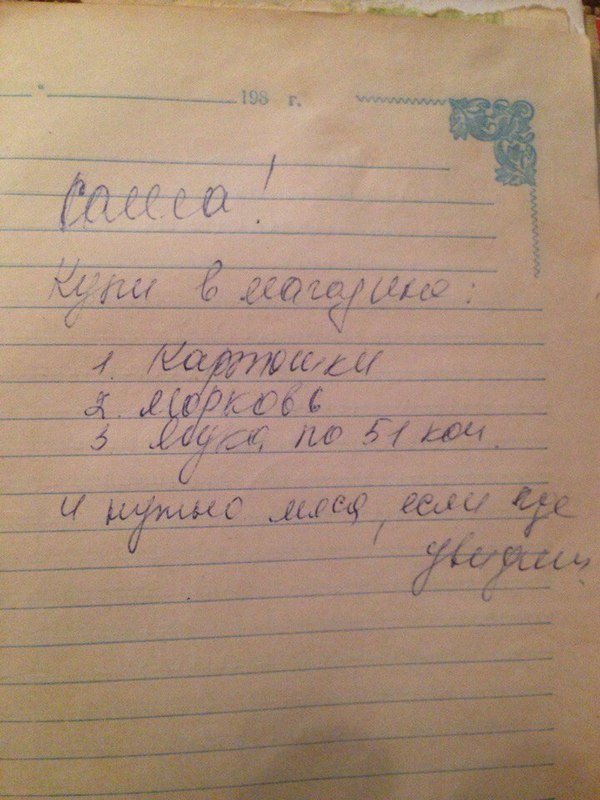 " 198 г.
Саша!
Купи в магазине:
1. Картошки
2. Морковь
3 Мука по 51 коп.
И нужно мяса, если где
увидишь